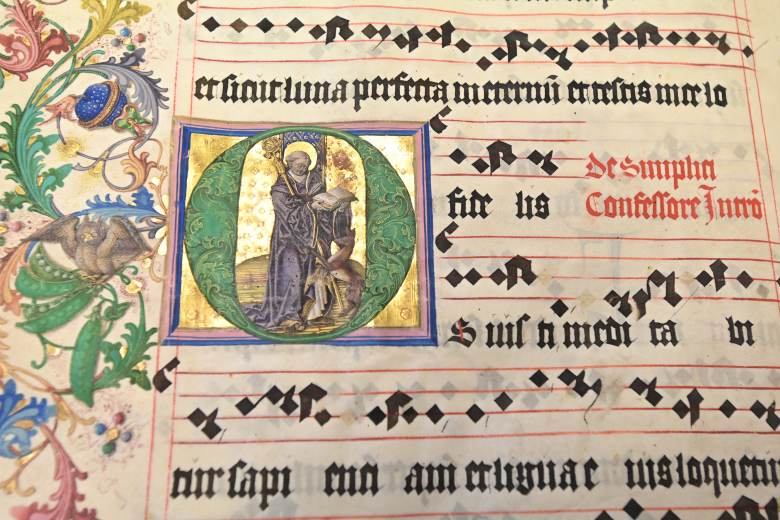 et sicut luna perfecta in eternū et testis in celo
De Simplici
fide lis Confessore Introi
O S ius ti medi ta bi
tur sapi enci am et ligua e ius loquetur